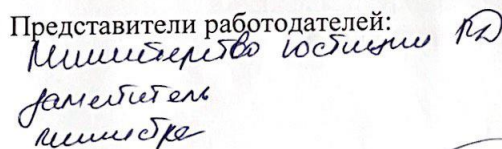 Представители работодателей:
Министерство юстиции РД
заместитель
министра